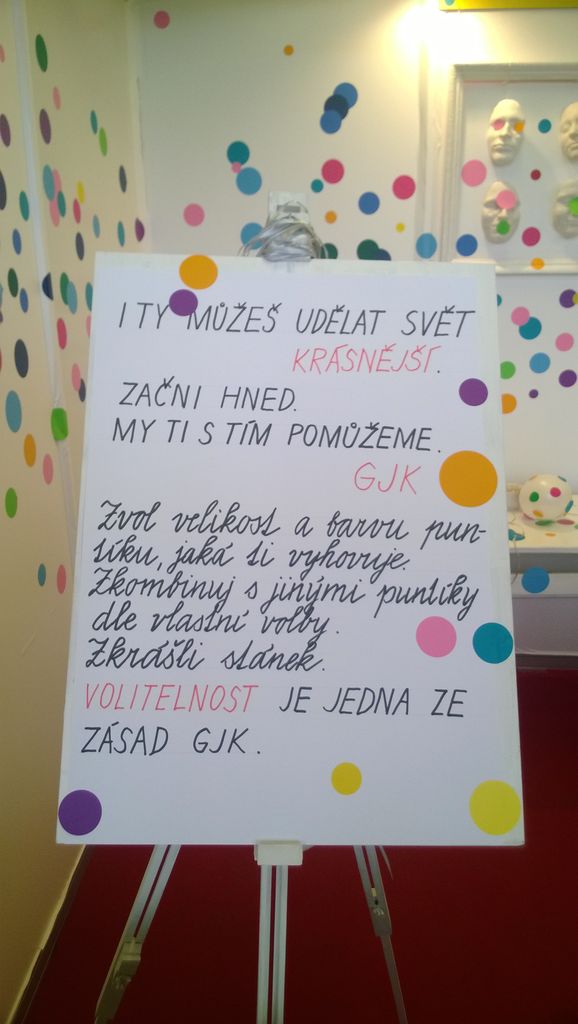 I TY MŮŽEŠ UDĚLAT SVĚT
KRÁSNĚJŠÍ.
ZAČNI HNED.
MY TI S TÍM POMŮŽEME.
GJK
Zvol velikost a barvu pun-
tíku, jaká ti vyhovuje.
Zkombinuj s jinými puntíky
dle vlastní volby.
Zkrášli stánek.
VOLITELNOST JE JEDNA ZE
ZÁSAD GJK.